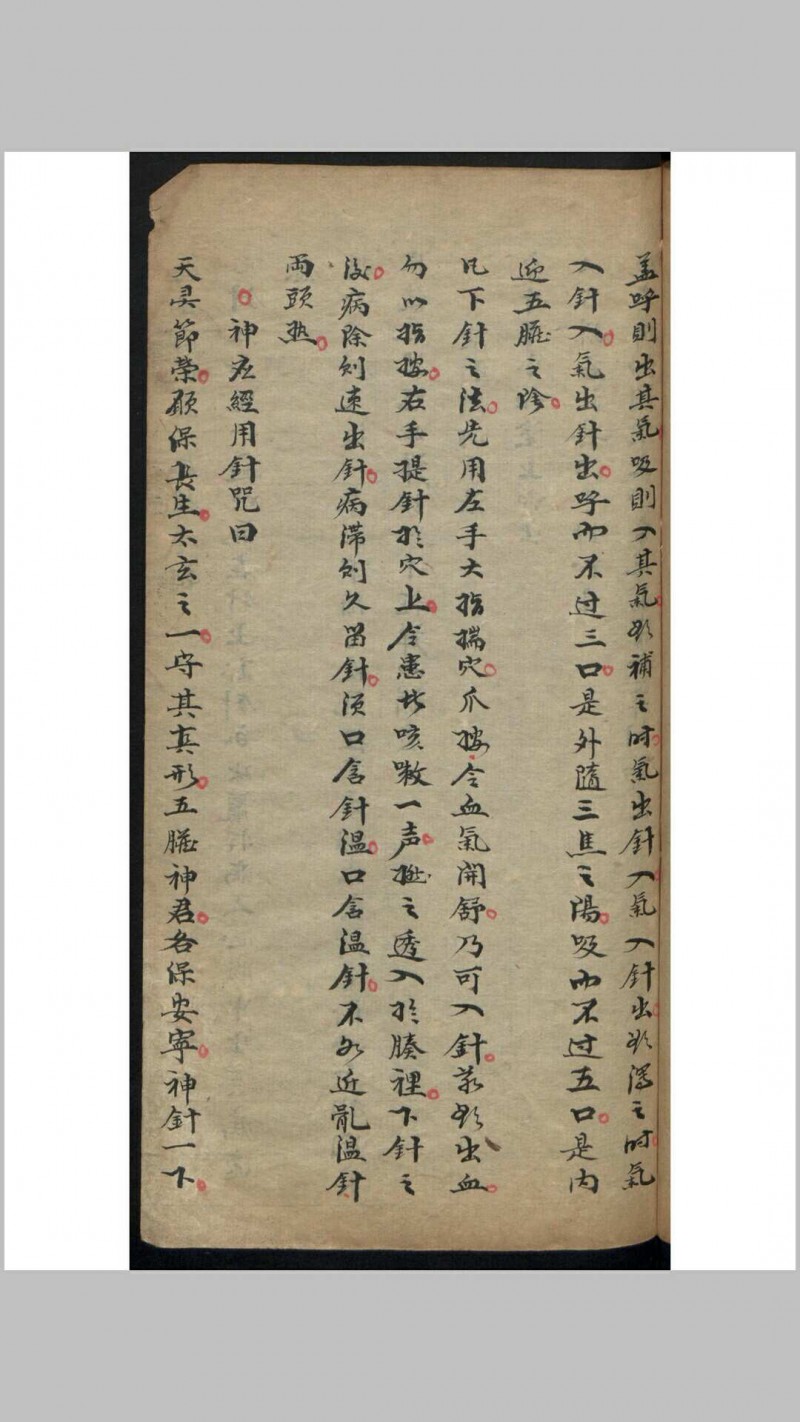 盖呼則出其氣吸則入其氣欲補之时氣出針入氣入針出欲瀉之时氣
入針入氣出針出呼而不过三口是外隨三焦之陽吸而不过五口是内
迎五臟之
凡下針之法先用左手大指揣穴爪按令血氣開舒乃可入針若欲出血
勿以指按右手提針於穴上令患者咳嗽一声捻之透入於腠裡下針之
後病除則速出針病滞則久留針須口含針温口含温針不如近肌温針
両頭热
神应經用針咒曰
天灵節榮願保長生太玄之一守其真形五臟神君各保安寧神針一下